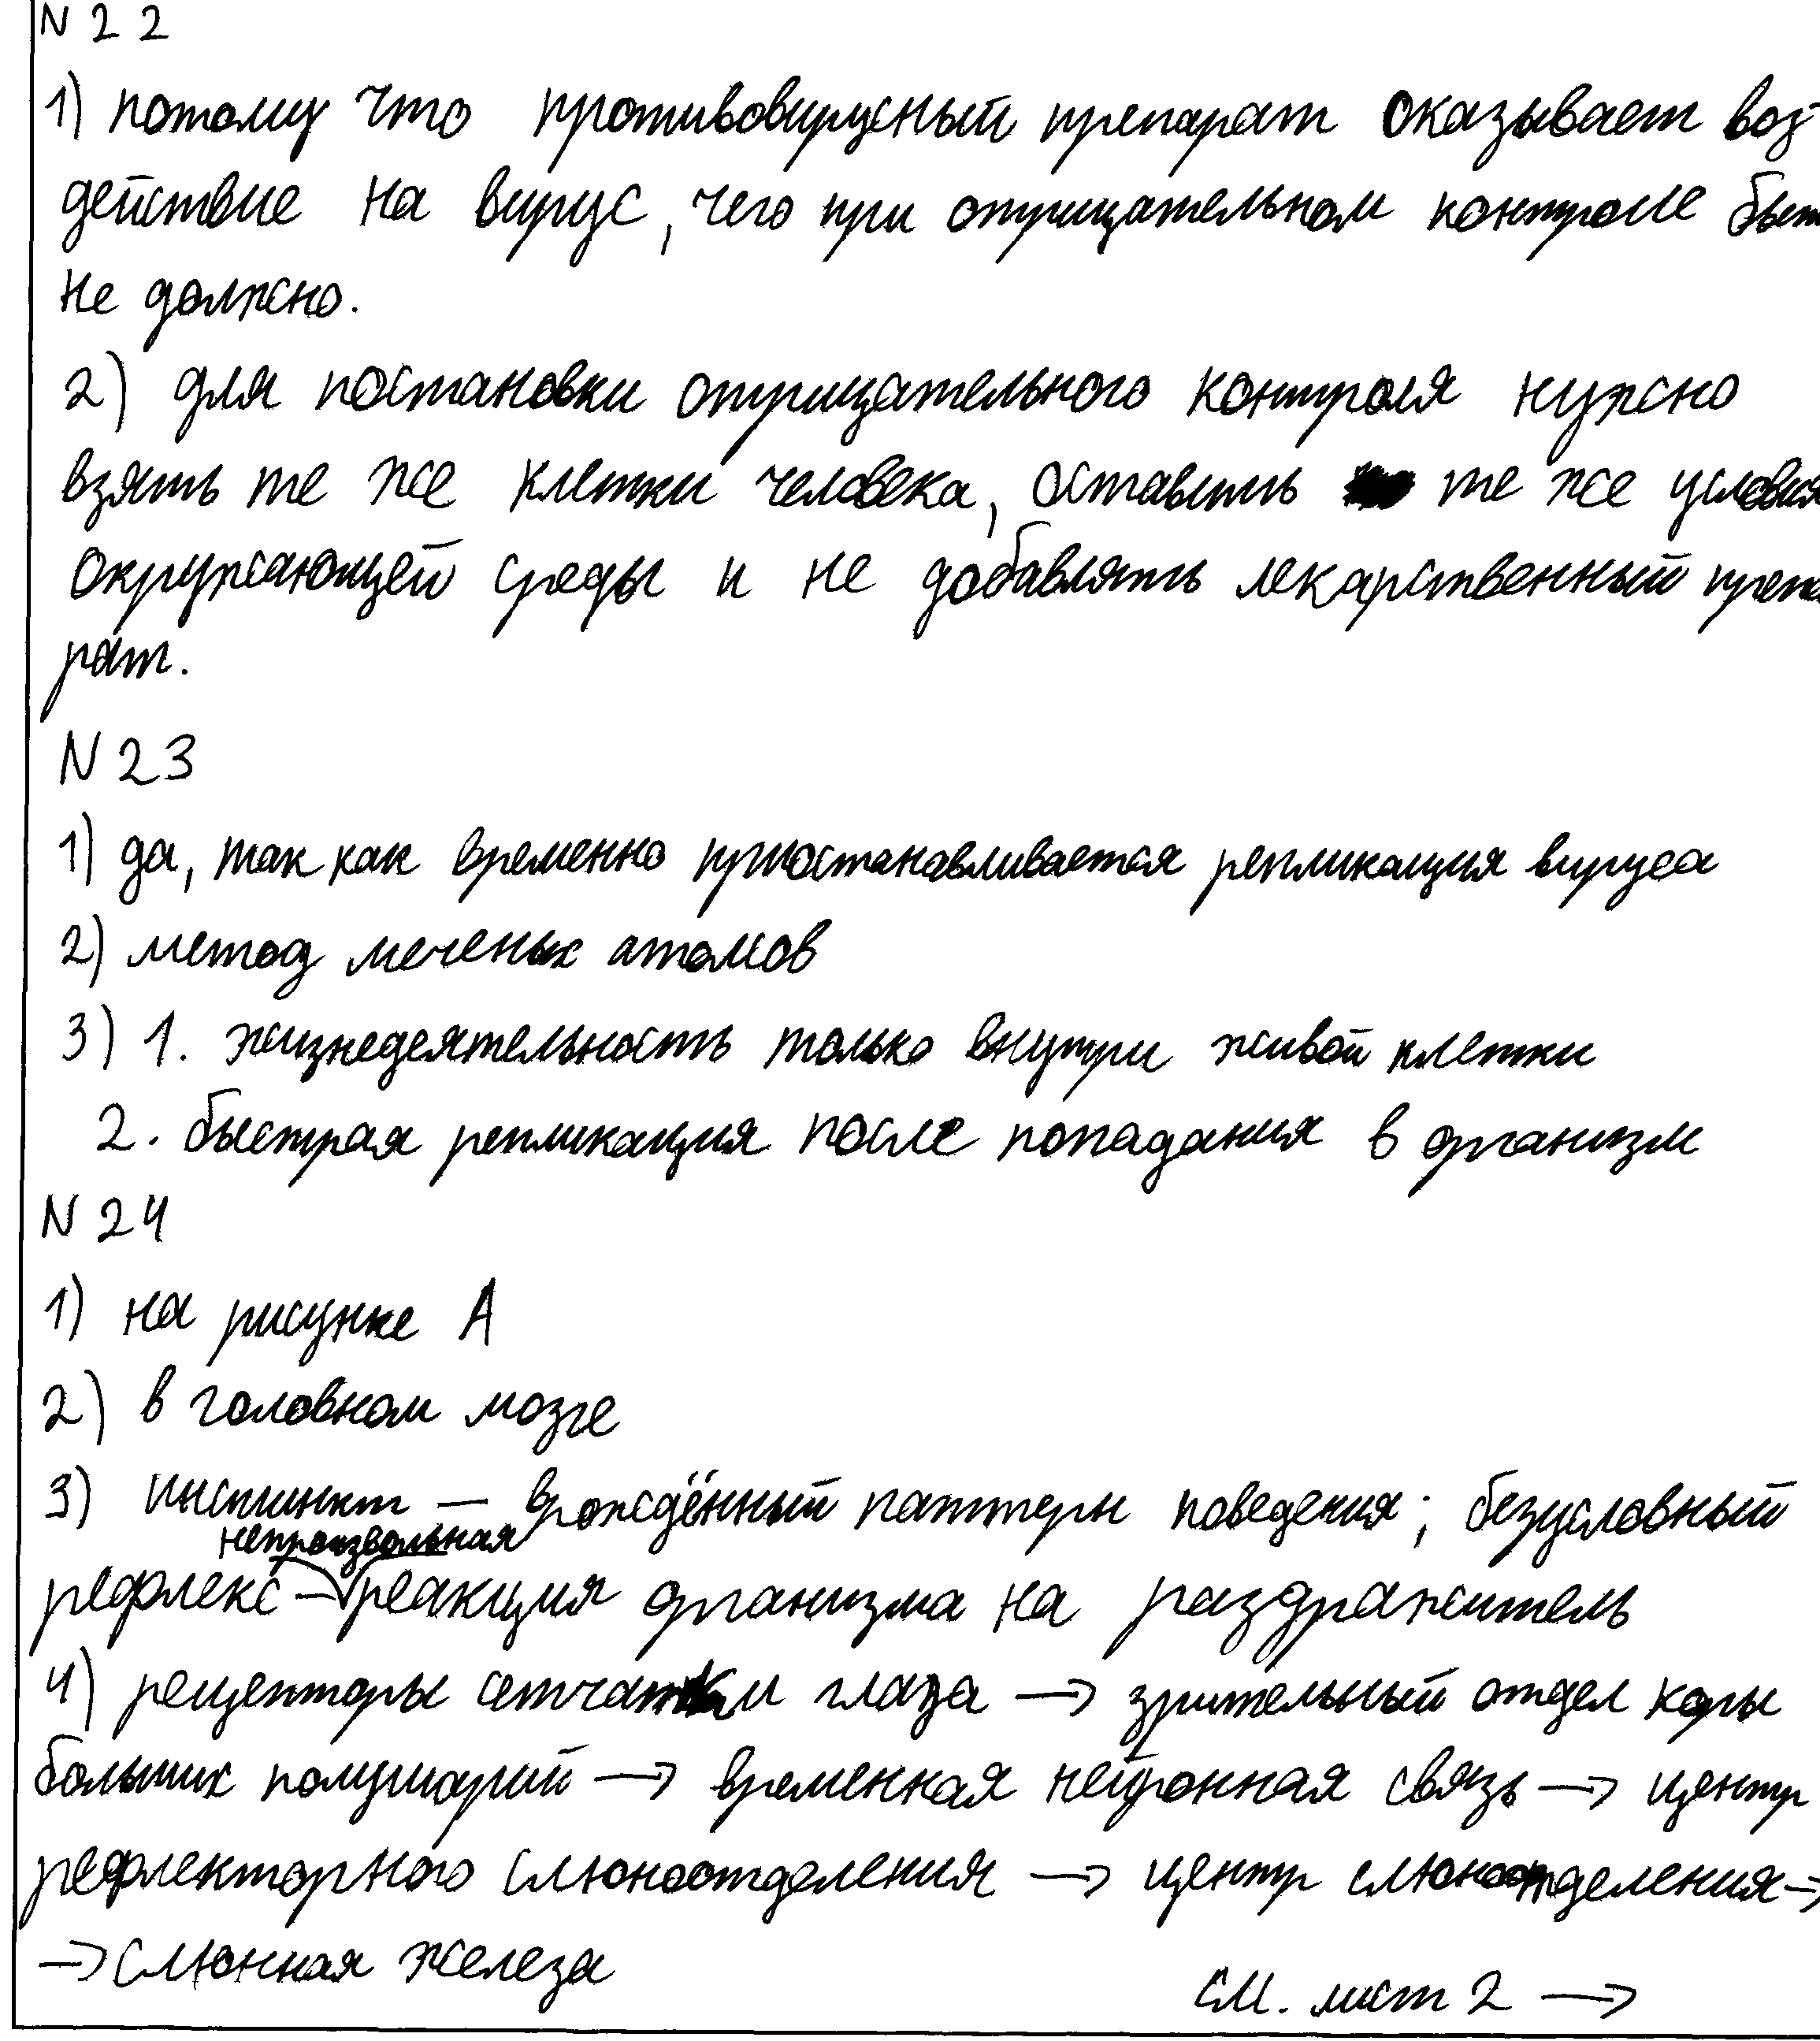 N 22
1) потому что противовирусный препарат оказывает воз-
действие на вирус, чего при отрицательном контроле быт
не должно.
2) для постановки отрицательного контроля нужно
взять те же клетки человека, оставить те же условия
окружающей среды и не добавлять лекарственный препа
рат.
N 23
1) да, так как временно приостанавливается репликация вируса
2) метод меченых атомов
3) 1. жизнедеятельность только внутри живой клетки
2. быстрая репликация после попадания в организм
N 24
1) на рисунке А
2) в головном мозге
3) инстинкт — врождённый паттерн поведения; безусловный
непроизвольная
рефлекс — реакция организма на раздражитель
4) рецепторы сетчатки глаза → зрительный отдел коры
больших полушарий → временная нейронная связь → центр
рефлекторного слюноотделения → центр слюноотделения →
→ слюнная железа
см. лист 2 →